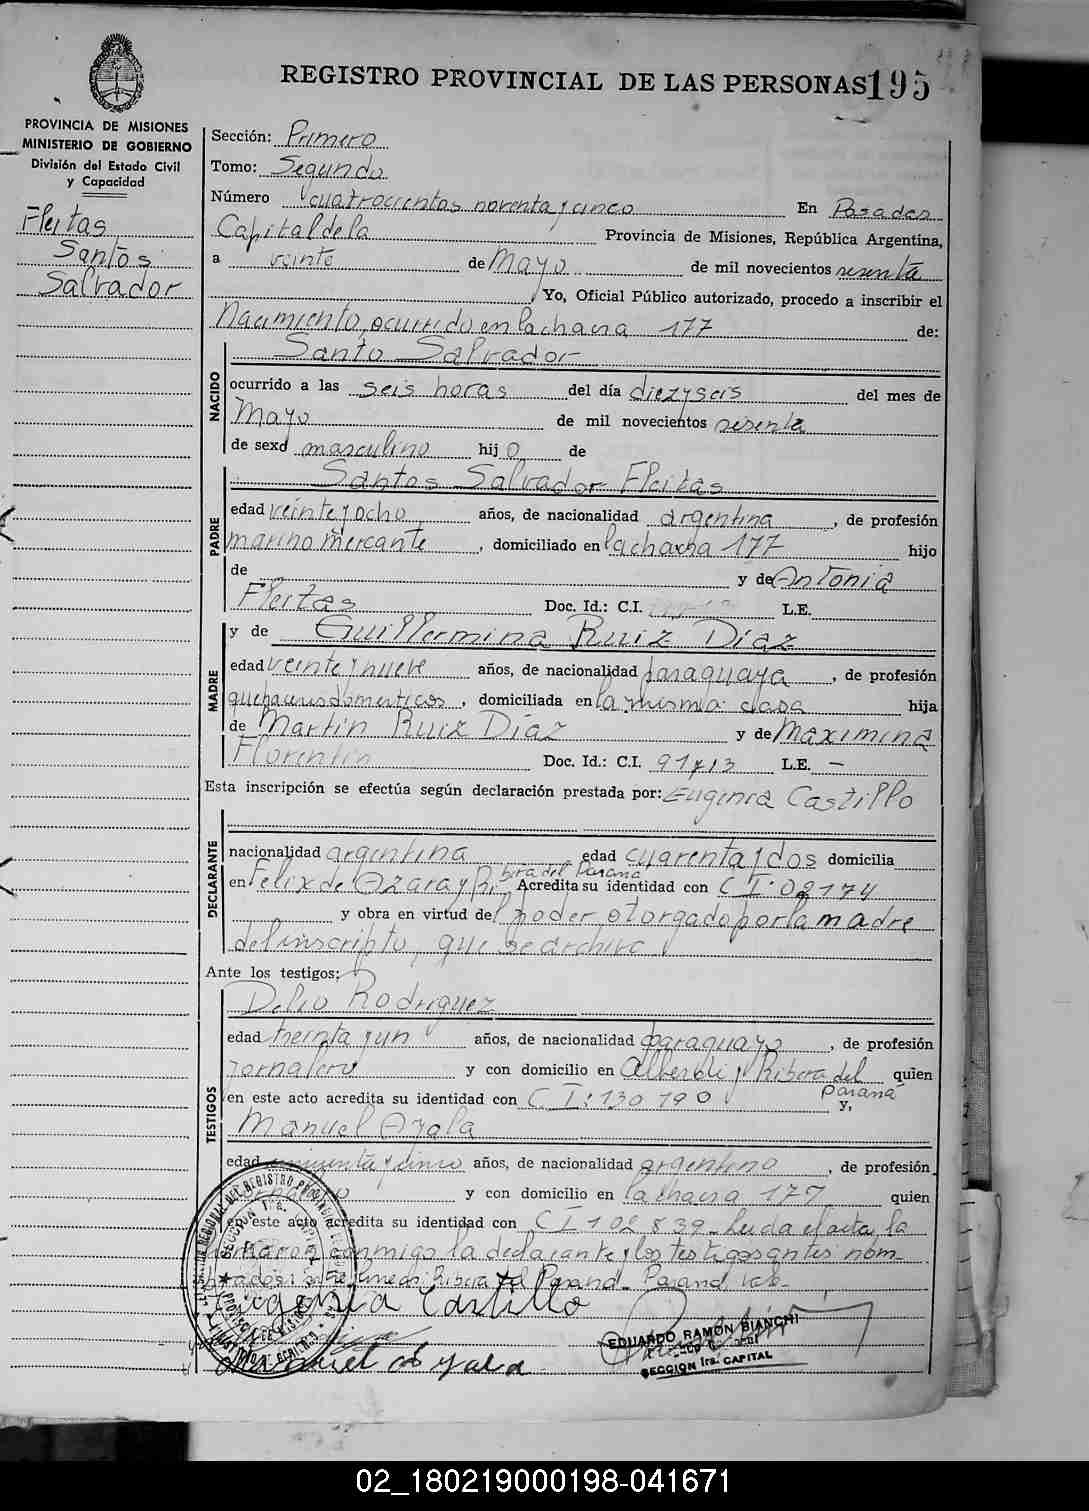 REGISTRO PROVINCIAL DE LAS PERSONAS 195
PROVINCIA DE MISIONES
MINISTERIO DE GOBIERNO
División del Estado Civil
y Capacidad
Fleitas
Santos
Salvador
Sección: Primero
Tomo: Segundo
Número cuatrocientos noventa y cinco En Posadas
Capital de la Provincia de Misiones, República Argentina,
a veinte de Mayo de mil novecientos sesenta
Yo, Oficial Público autorizado, procedo a inscribir el
Nacimiento, ocurrido en la chacra 177 de:
NACIDO
Santo Salvador
ocurrido a las seis horas del día diez y seis del mes de
Mayo de mil novecientos sesenta
de sexo masculino hijo de
PADRE
Santos Salvador Fleitas
edad veinte y ocho años, de nacionalidad argentina, de profesión
marino mercante, domiciliado en la chacra 177 hijo
de y de Antonia
Fleitas Doc. Id.: C.I. L.E.
MADRE
y de Guillermina Ruiz Díaz
edad veinte y nueve años, de nacionalidad paraguaya, de profesión
quehaceres domesticos, domiciliada en la misma casa hija
de Martin Ruiz Díaz y de Maximina
Florentin Doc. Id.: C.I. 91713 L.E. —
Esta inscripción se efectúa según declaración prestada por: Eugenia Castillo
DECLARANTE
nacionalidad argentina edad cuarenta y dos domicilia
en Felix de Azara y Ribera del Parana Acredita su identidad con C I: 02174
y obra en virtud del poder otorgado por la madre
del inscripto, que se archiva
Ante los testigos:
TESTIGOS
Delio Rodriguez
edad treinta y un años, de nacionalidad paraguayo, de profesión
jornalero y con domicilio en Alberdi y Ribera del Paraná quien
en este acto acredita su identidad con C I: 130190 y,
Manuel Ayala
edad cincuenta y cinco años, de nacionalidad argentino, de profesión
jornalero y con domicilio en la chacra 177 quien
en este acto acredita su identidad con C I 102839 - Leida el acta, la
firmaron conmigo la declarante y los testigos antes nom
brados Ribera del Parana - Parana vale -
Eugenia Castillo
Manuel Ayala
EDUARDO RAMON BIANCHI
SECCION 1ra. CAPITAL
02_180219000198-041671